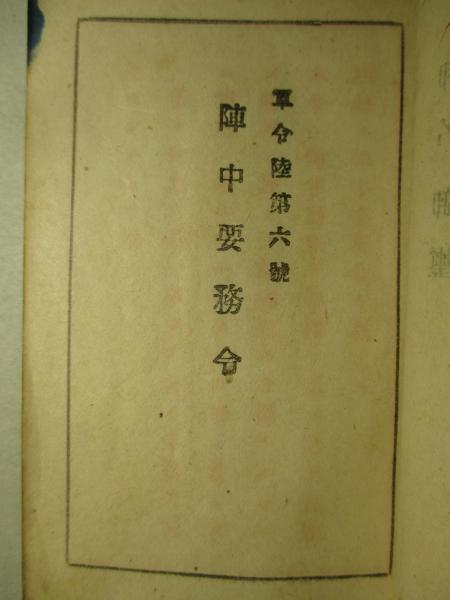 軍令陸第六號
陣中要務令